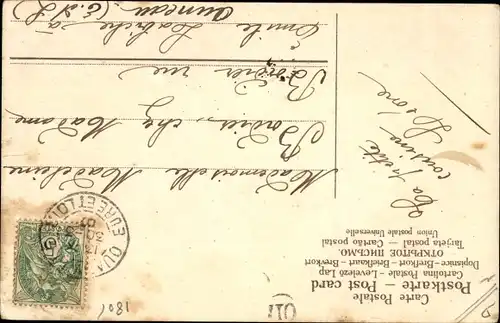 Carte Postale
Postkarte – Post card
Cartolina Postale – Levelező Lap
Dopisnice – Brefkort – Briefkaart – Brevkort
ОТКРЫТОЕ ПИСЬМО.
Tarjeta postal – Cartão postal
Union postale Universelle
Ta petite
cousine
Mademoiselle Madeleine
Bordier, chez Madame
Bordier rue
Émile Labiche à
Auneau (E. & L)
EURE ET LOIR
1801